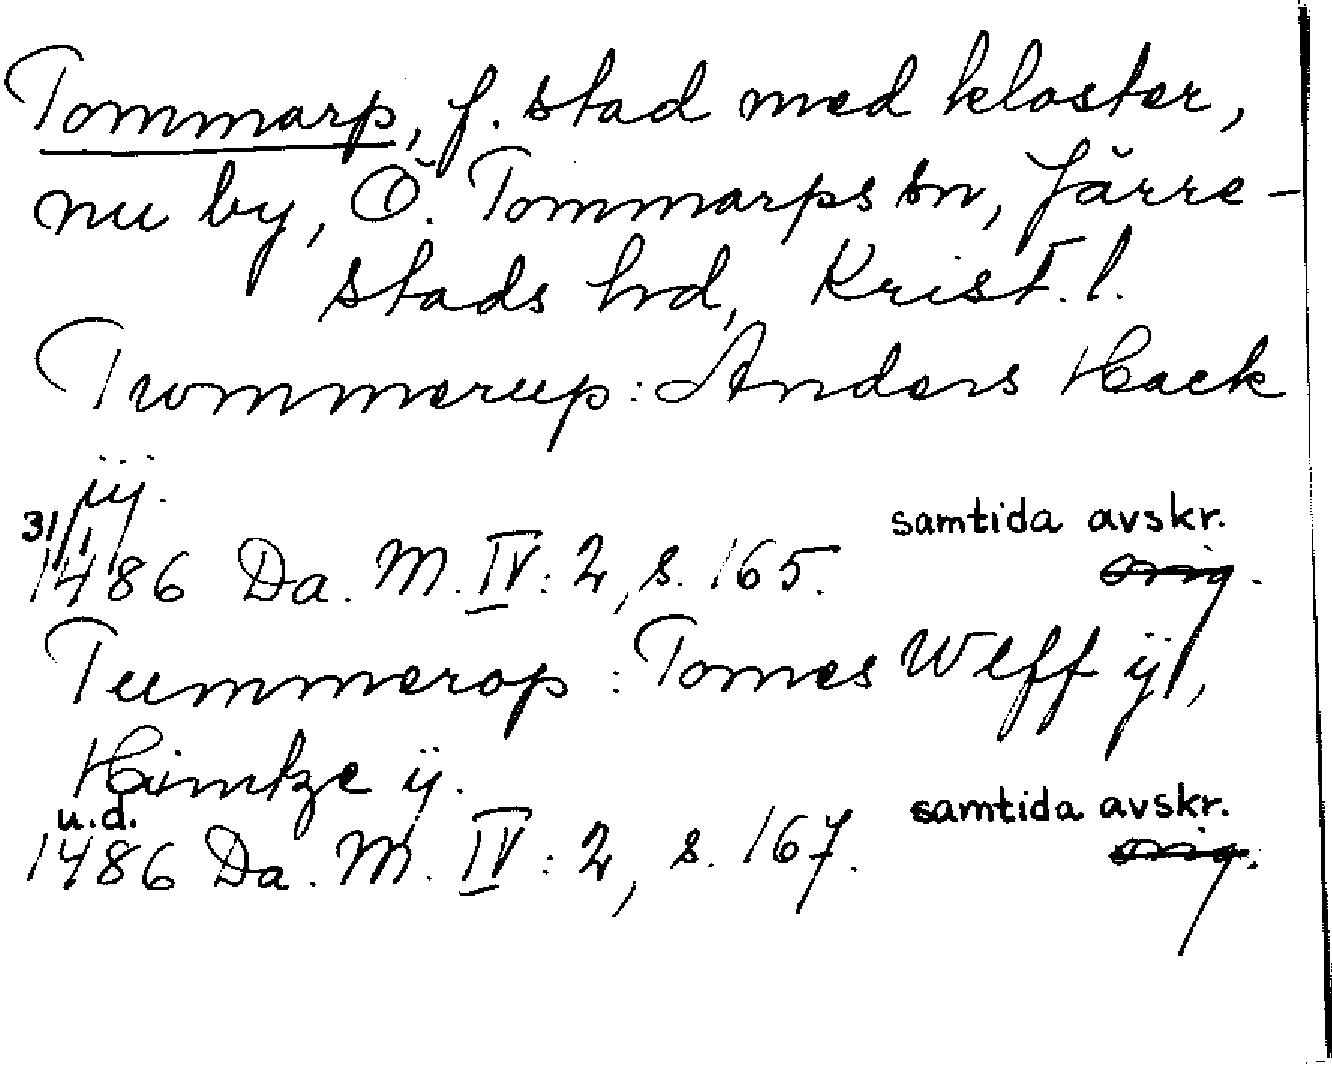 Tommarp, f. stad med kloster,
nu by, Ö. Tommarps sn, Järre-
stads hd, Krist. l.
Twmmerup: Anders Hack
iij.
31/1 samtida avskr.
1486 Da. M. IV: 2, s. 165. orig.
Tummerop: Tomes Wlff ij,
Heintze ij.
u.d. samtida avskr.
1486 Da. M. IV: 2, s. 167. orig.